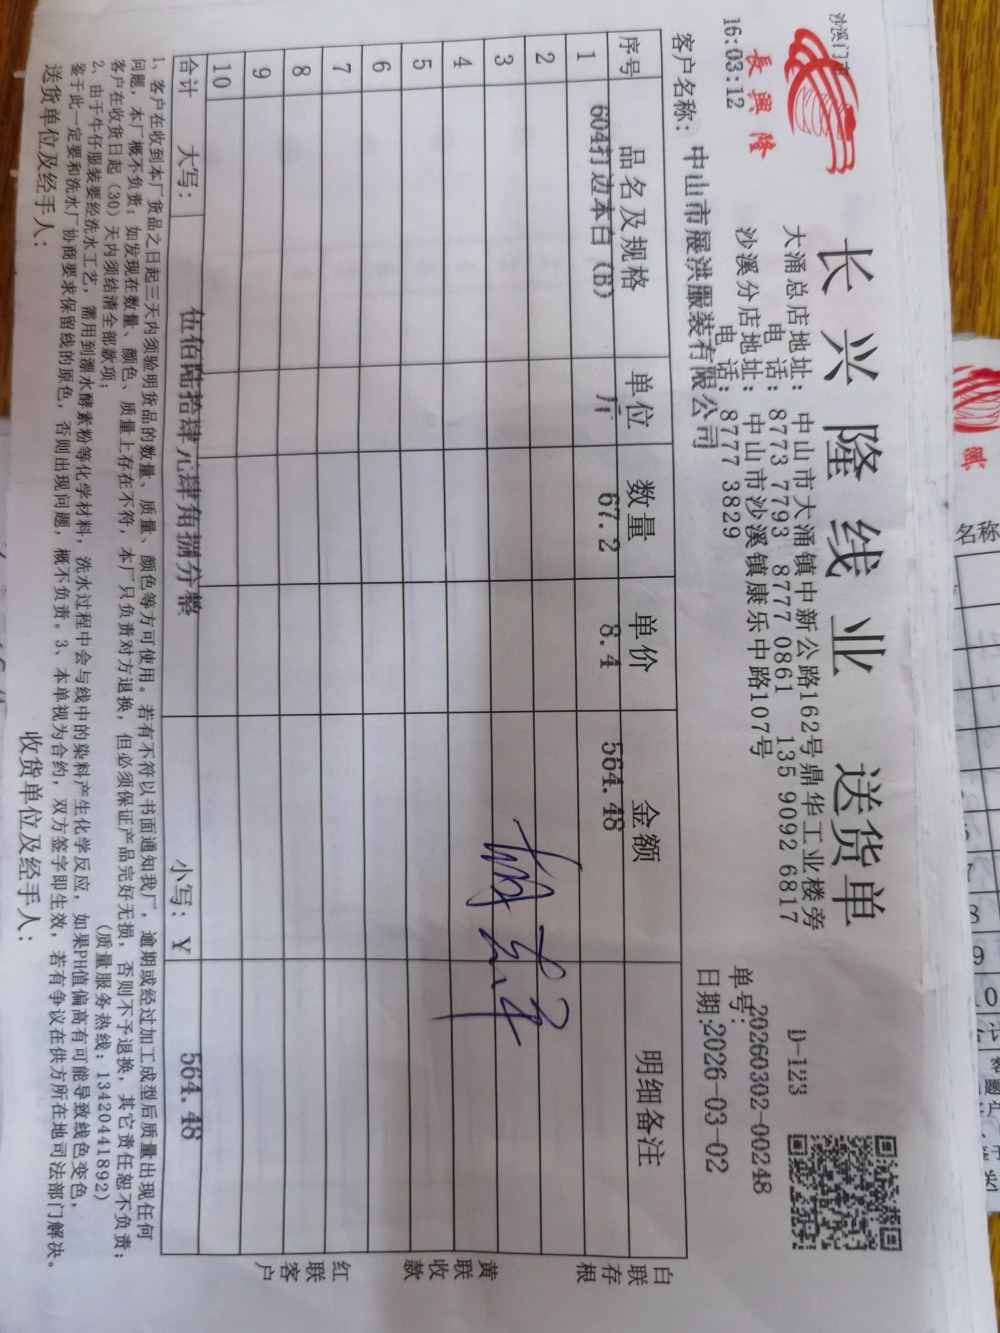 沙溪门
16:03:12
長興隆
长兴隆线业 送货单
大涌总店地址：中山市大涌镇中新公路162号鼎华工业楼旁
电 话：8773 7793 8777 0861 135 9092 6817
沙溪分店地址：中山市沙溪镇康乐中路107号
电 话：8777 3829
D-123
单号：20260302-00248
日期:2026-03-02
客户名称：中山市展洪服装有限公司
序号 品名及规格 单位 数量 单价 金额 明细备注
1 604打边本白（B） 斤 67.2 8.4 564.48
2
3
4
5
6
7
8
9
10
合计 大写： 伍佰陆拾肆元肆角捌分整 小写：￥ 564.48
白联存根
黄联收款
红联客户
1、客户在收到本厂货品之日起三天内须验明货品的数量、质量、颜色等方可使用。若有不符以书面通知我厂，逾期或经过加工成型后质量出现任何
问题，本厂概不负责；如发现在数量、颜色、质量上存在不符，本厂只负责对方退换，但必须保证产品完好无损，否则不予退换，其它责任恕不负责；
客户在收货日起（30）天内须结清全部款项； （质量服务热线：13420441892）
2、由于牛仔服装要经洗水工艺，需用到漂水酵素粉等化学材料，洗水过程中会与线中的染料产生化学反应，如果PH值偏高有可能导致线色变色，
鉴于此一定要和洗水厂协商要求保留线的原色，否则出现问题，概不负责。3、本单视为合约，双方签字即生效，若有争议在供方所在地司法部门解决。
送货单位及经手人： 收货单位及经手人：
興
名称
8
9